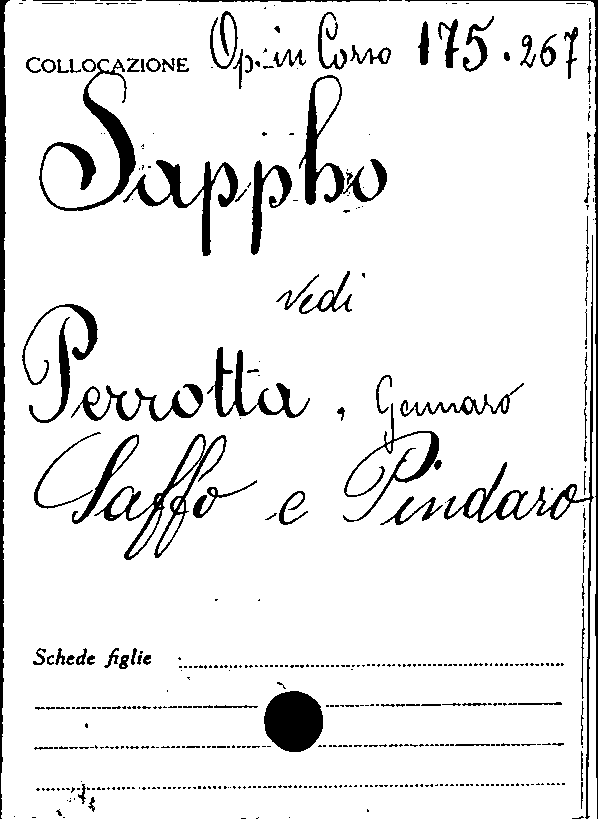 COLLOCAZIONE Op. in Corso 175.267
Sappho
vedi
Perrotta, Gennaro
Saffo e Pindaro
Schede figlie :